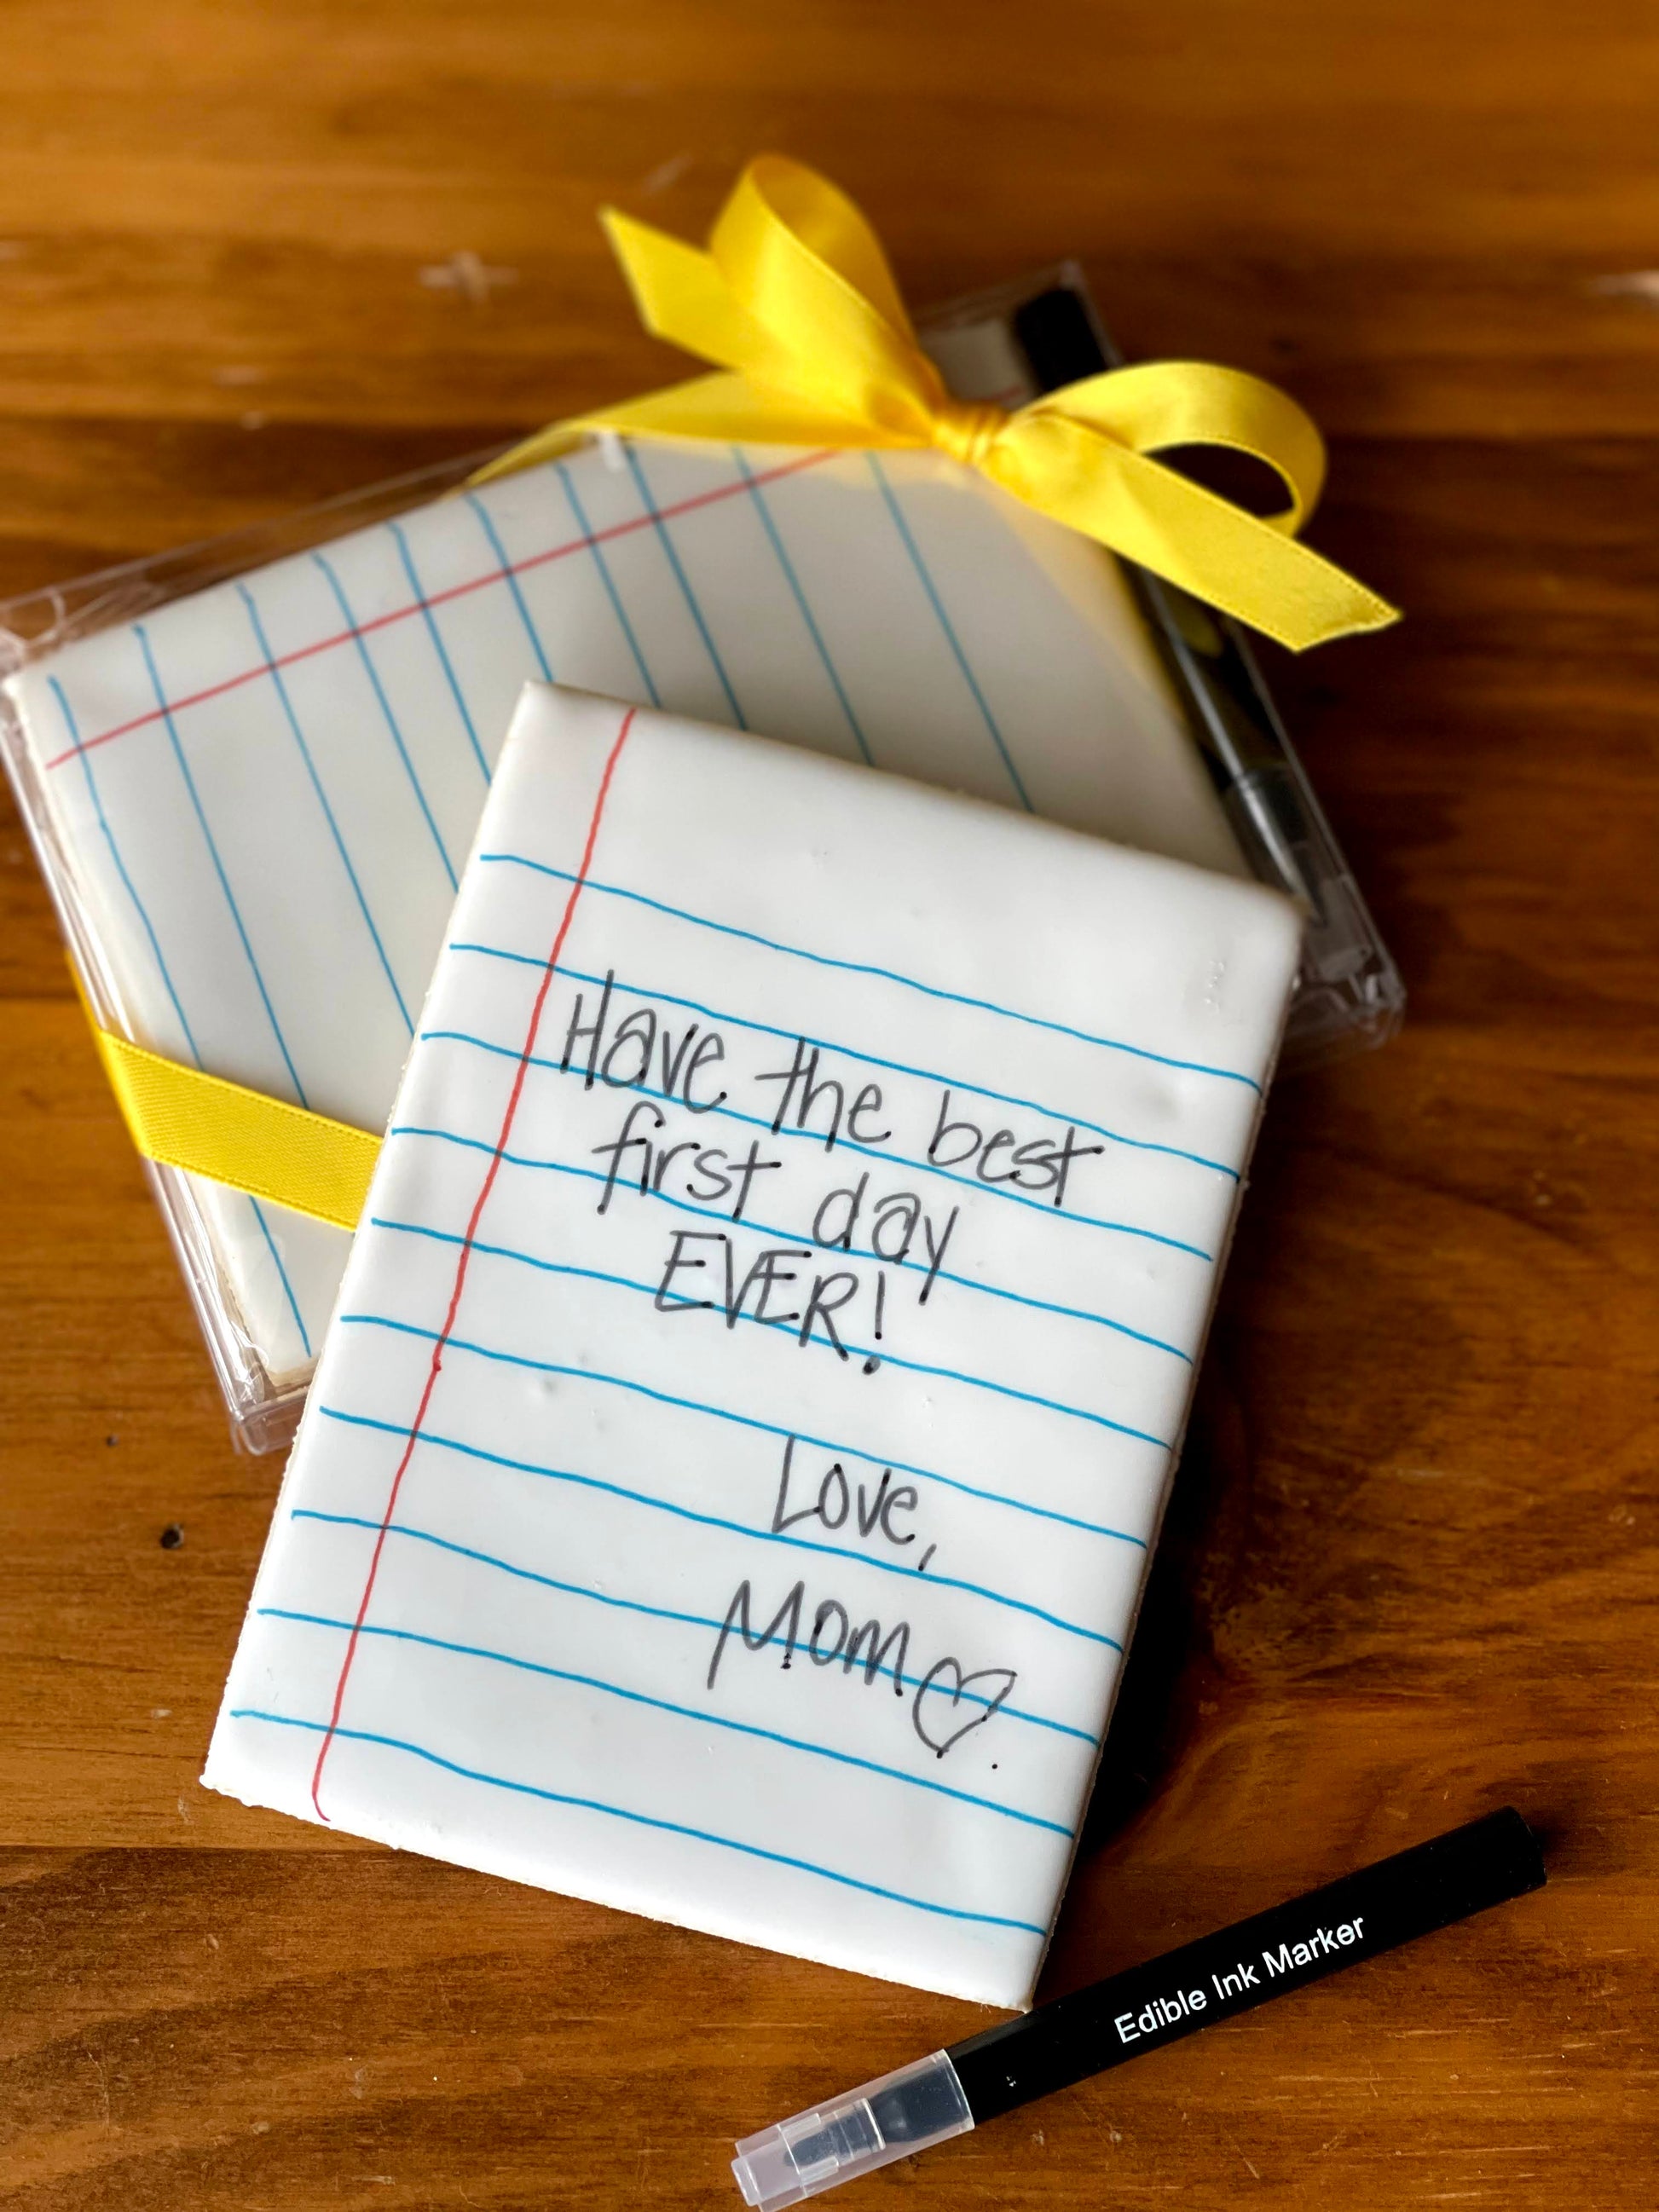 Have the best
first day
EVER!
Love,
Mom♡
Edible Ink Marker